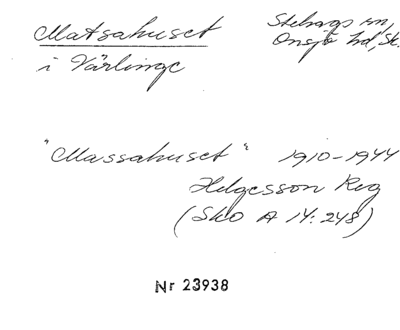 Matsahuset
i Värlinge
Stehags sn,
Onsjö hd, Sk.
"Massahuset" 1910-1944
Helgesson Reg
(Sko A 14:248)
Nr 23938